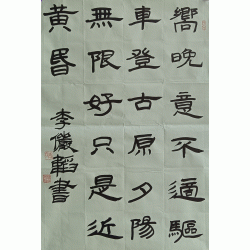 嚮晚意不適驅
車登古原夕陽
無限好只是近
黄昏
李韜書